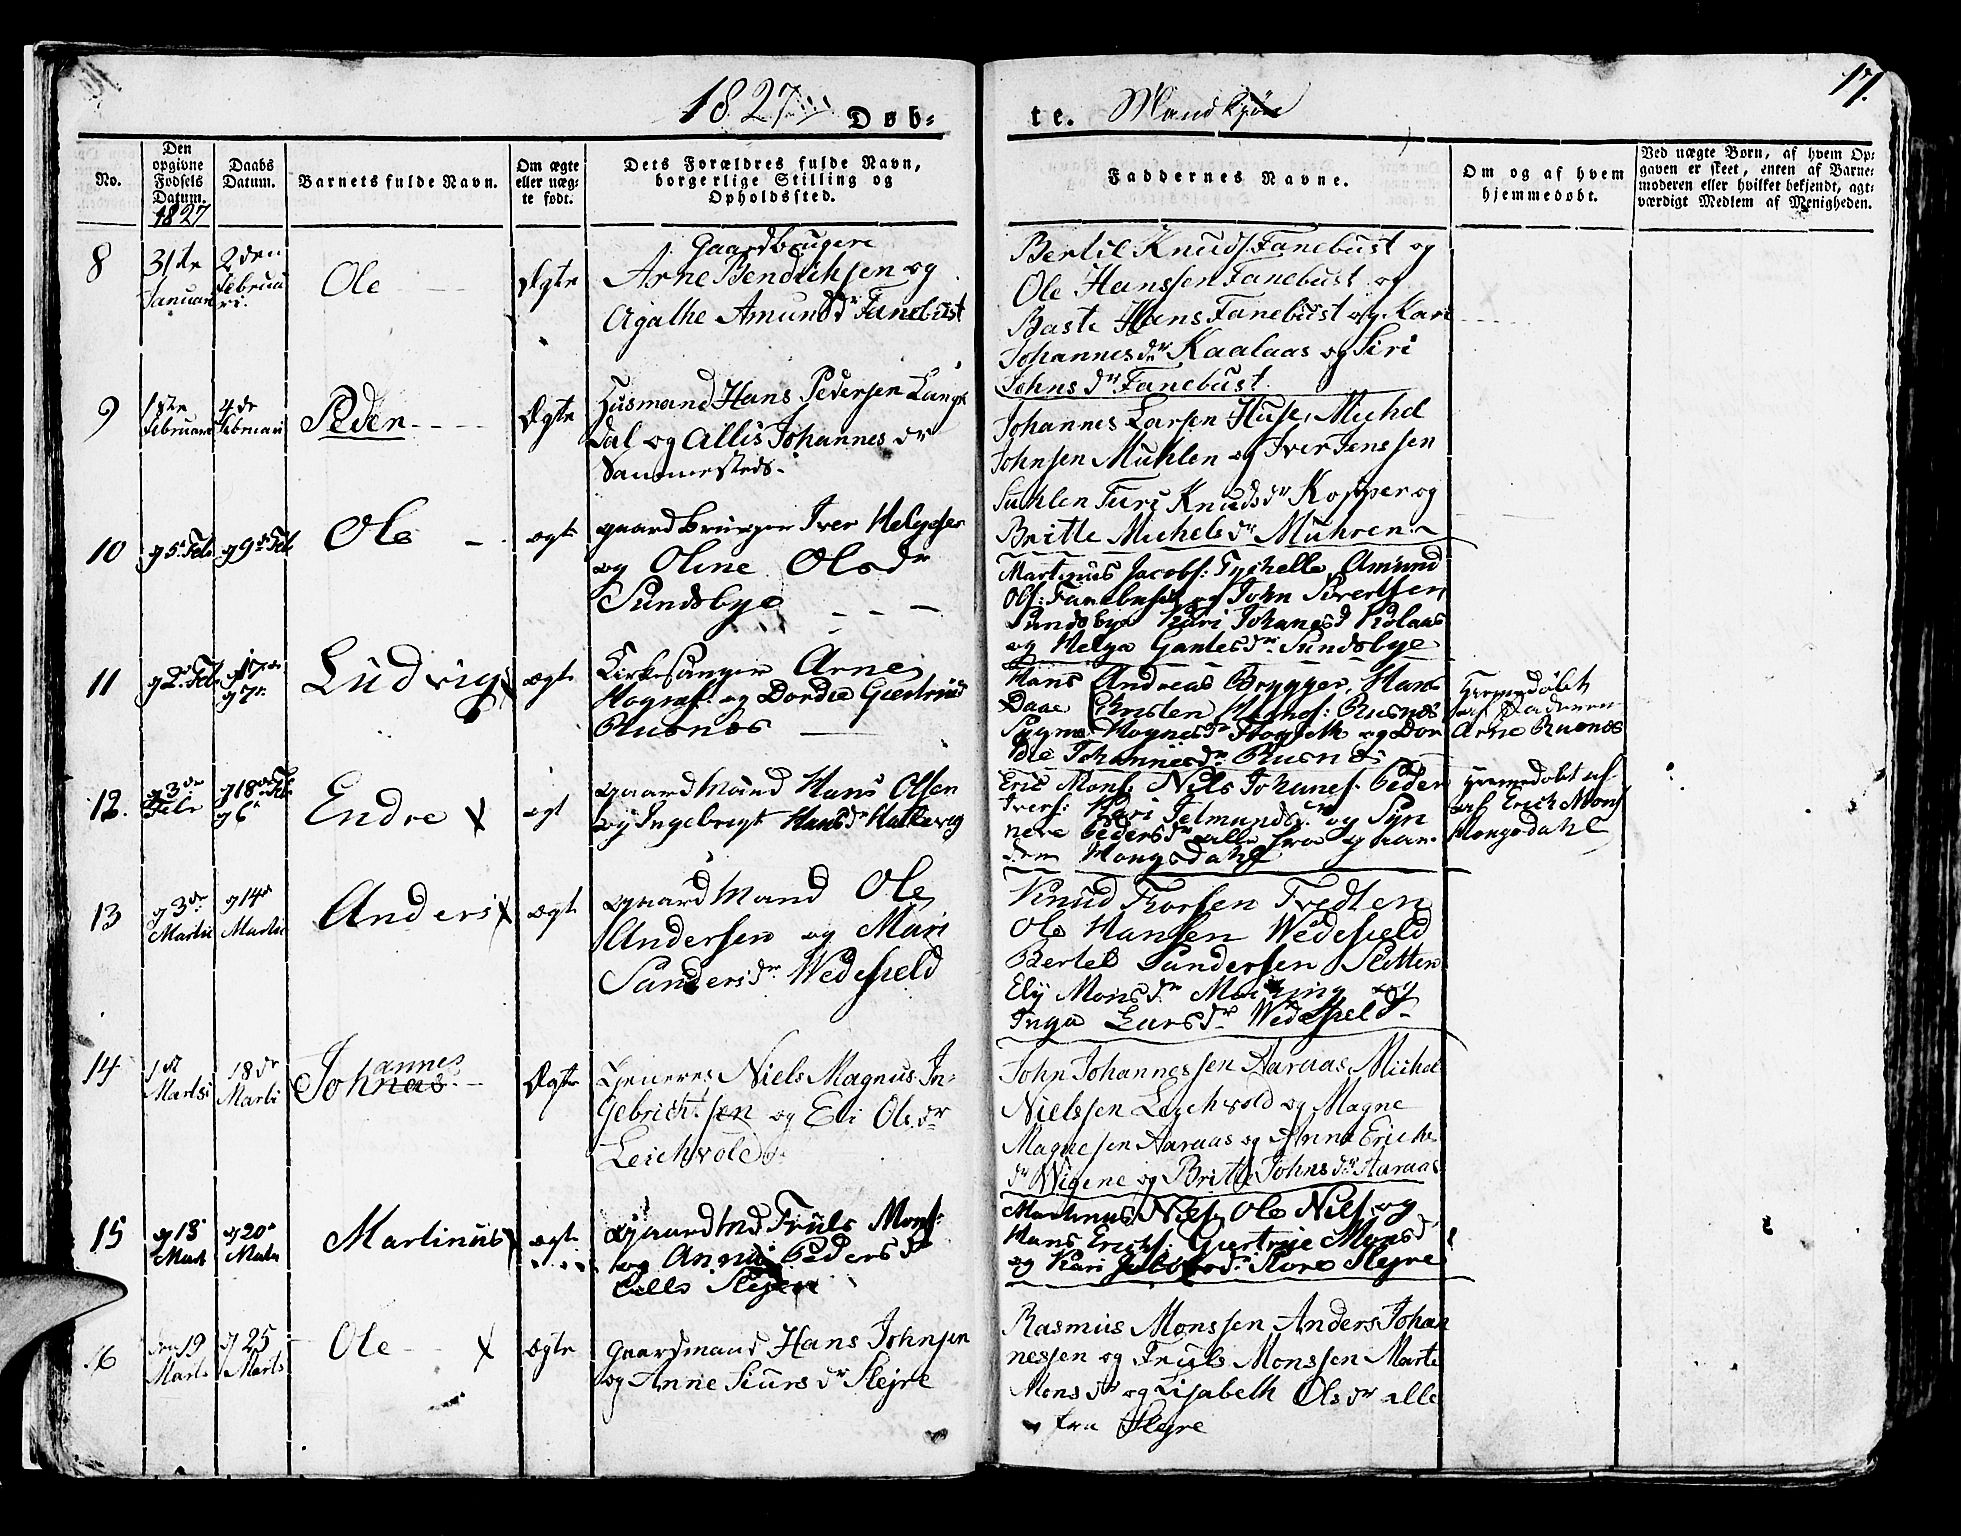 1827
Døb-
te. Mandkjøn
17.
No.
Den opgivne Fødsels Datum. 1827
Daabs Datum.
Barnets fulde Navn.
Om ægte eller uæg-te født.
Dets Forældres fulde Navn, borgerlige Stilling og Opholdssted.
Faddernes Navne.
Om og af hvem hjemmedøbt.
Ved uægte Børn, af hvem Op-
gaven er skeet, enten af Barne-
moderen eller hvilket bekjendt, agt-
værdigt Medlem af Menigheden.
8
31te Januari
2den Februari
Ole
Ægte
Gaardbrugere
Arne Bendichsen og
Agathe Amundsdr Fanebust
Bertil Knuds. Fanebust og
Ole Hanssen Fanebust og
Baste Hans Fanebust og Kari
Johannesdr Kaalaas og Siri
Johnsdr Fanebust
9
1ste Februari
4de Februari
Peder
Ægte
Husmand Hans Pedersen Lange
dal og Allis Johannesdr
Sammesteds.
Johannes Larsen Huse, Michel
Johnsen Muhlen og Iver Jenssen
Turi Knudsdr Kopper og
Britte Michelsdr Muhren
10
g 5 Feb.
g 9de Feb.
Ole
ægte
gaardbruger Iver Helgesen
og Oline Olsdr
Sundsbye
Martinus Jacobs: Amund
Ols: Fanebust og John Sivertsen
Sundsbye Kari Johanesd Kolaas
og Helga Gautesdr Sundsbye
11
g 2 Feb.
Ludvig
ægte
Kirkesanger Arne
Hognes. og Dordie Giertrud
Rusnøs
Hans Andreas Brygger, Hans
Daae Christen Rusnøs
Hognesdr og Dor
die Johannesdr Rusnøs
hiemedøbt
af Faderen
Arne Rusnøs
12.
g 3de Febr
g 18de Feb.
Endre
ægt
gaardmand Hans Olsen
og Ingebregt Hansdr Hattevig
Eric Mons. Niels Johanes. Peder
Ivers: Telmundsd. og Syn
neve Pedersdr alle fra gaar
den Hougsdahl
hiemedøbt af
af Erich Mons
Hougsdahl
13
g 3de Martii
g 14de Martii
Anders
ægt
gaardmand Ole
Andersen og Mari
Sandersdr Wedefield
Knud Thorsen Tvedten
Ole Hansen Wedefield
Bertel Sandersen Sletten
Ely Monsdr og
Inga Larsdr Wedefield
14
1st Martsi
18de Marti
Johannes
Ægte
Niels Magnus In-
gebrichtsen og Eli Olsdr
Leichvold
John Johannessen Aaraas, Michel
Nielssen Leichvold og Magne
Magnesen Aaraas og Anna Erichs
dr Wigene og Britte Johnsdr Aaraas
15
g 13 Mart
g 20 Marts
Martinus
ægte
gaardmd Truls Mons:
og Anna Pedersdr
Lille Slejre
Martinus Niels. Ole Niels. og
Hans Erichs. Giertrue Monsd
og Kari Store Slejre
16
den 19 Marts
d 25 Marts
Ole
ægte
gaardmand Hans Johnsen
og Anne Siursdr Slejre
Rasmus Monssen Anders Johan
nessen og Truls Monssen Marte
Monsdr og Lisabeth Olsdr alle
fra Slejre